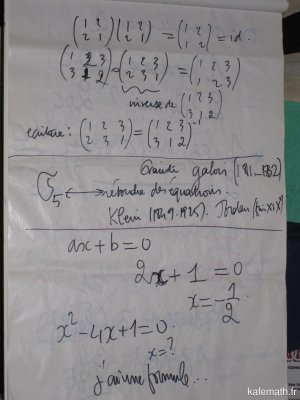 (1 2 / 2 1)(1 2 / 2 1) = (1 2 / 1 2) = id.
(1 2 3 / 3 1 2) (1 2 3 / 2 3 1) = (1 2 3 / 1 2 3)
inverse de (1 2 3 / 3 1 2)
écriture : (1 2 3 / 2 3 1) = (1 2 3 / 3 1 2)⁻¹
Galois (1811-1832)
S₅ ↔ résoudre des équations.
Klein (1849-1925). Jordan (fin XIXe)
ax + b = 0
2x + 1 = 0
x = -1/2
x² - 4x + 1 = 0.
x = ?
j'ai une formule...
kafemath.fr